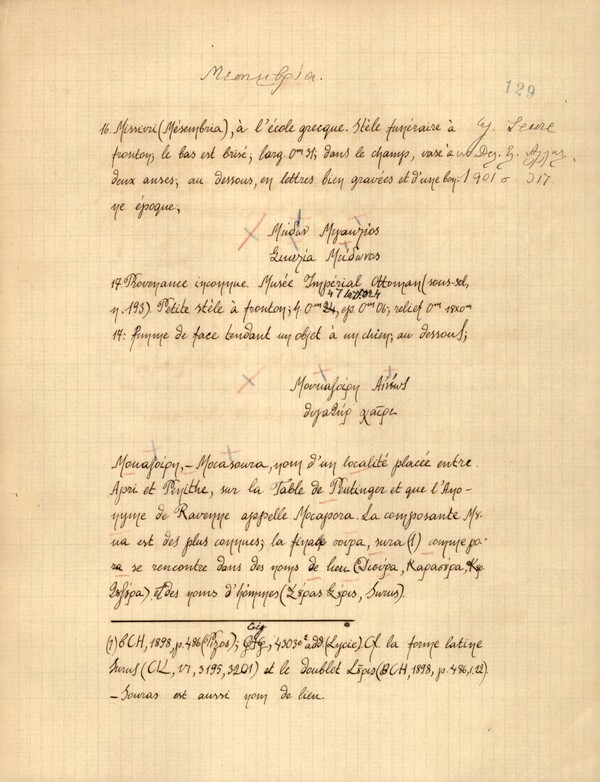 Μεσημβρία.
129
16. Missivri (Mésembria), à l'école grecque. Stèle funéraire à
fronton; le bas est brisé; larg. 0m 31; dans le champ, vase à
deux anses; au dessous, en lettres bien gravées et d'une bon-
ne époque;
1901 σ 317
Μείδων
Μείδωνος
17 Provenance inconnue. Musée Impérial Ottoman (sous-sol,
n. 193). Petite stèle à fronton; h. 0m 24, ep. 0m 06; relief 0m 18x0m
17: femme de face tendant un objet à un chien; au dessous;
Μουκασοίρη
θυγατήρ χαῖρε
Μουκασοίρη, - Mocasoura, nom d'un localité placée entre
Apri et Penithe, sur la Table de Peutinger et que l'Ano-
nyme de Ravenne appelle Mocapora. La composante Mu-
ua est des plus connues; la finale σουρα, sura (1) comme pa-
ra se rencontre dans des noms de lieu Καρασύρα,
et des noms d'hommes Surus).
(1) BCH, 1898, p. 486 (Pizos); Cig 4303 add. (Lycie). Cf. la forme latine
Surus (CIL, VI, 3195, 3201) et le doublet (BCH, 1898, p. 486, l. 22)
- Souras est aussi nom de lieu.